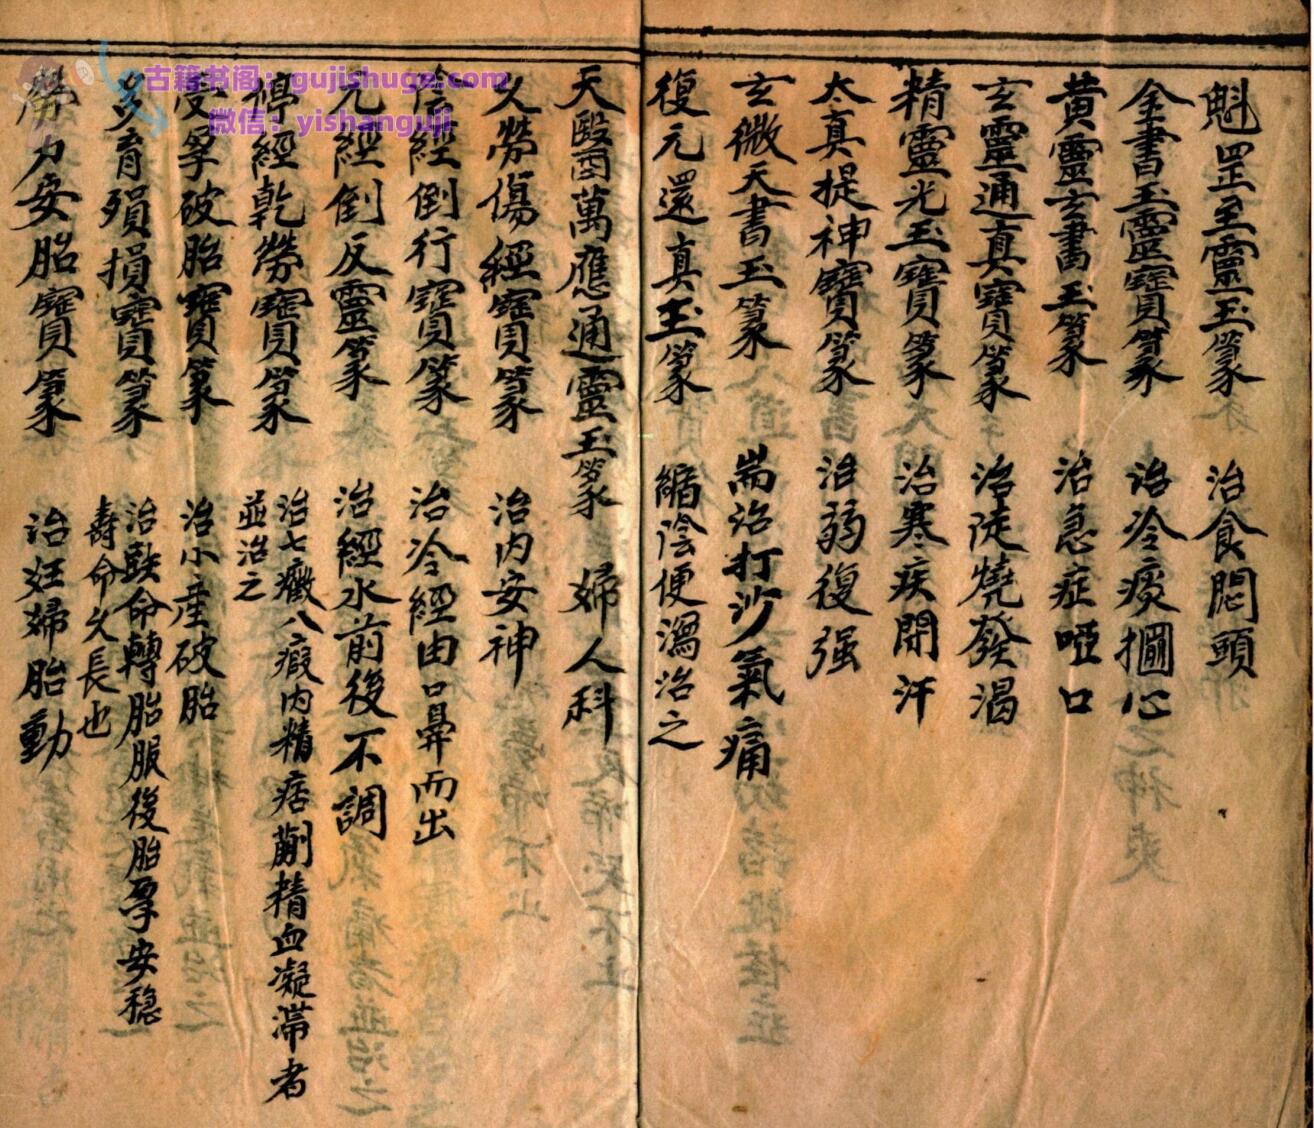 魁罡至靈玉篆 治食悶頭
金書玉靈寶篆 治冷痰攔心
黄靈玄書玉篆 治急症啞口
玄靈通真寶篆 治陡燒發渴
精靈光玉寶篆 治寒疾開汗
太真提神寶篆 治弱復强
玄微天書玉篆 耑治打沙氣痛
復元還真玉篆 縮陰便瀉治之
天醫萬應通靈玉篆 婦人科
久勞傷經寶篆 治内安神
陰經倒行寶篆 治冷經由口鼻而出
元經倒反靈篆 治經水前後不調
停經乾勞寶篆 治七癥八瘕内精痞精血凝滯者
並治之
受孕破胎寶篆 治小産破胎
多育殞損寶篆 治命轉胎服後胎孕安穏
壽命久長也
勞力安胎寶篆 治妊婦胎動
古籍书阁：gujishuge.com
微信：yishanguji